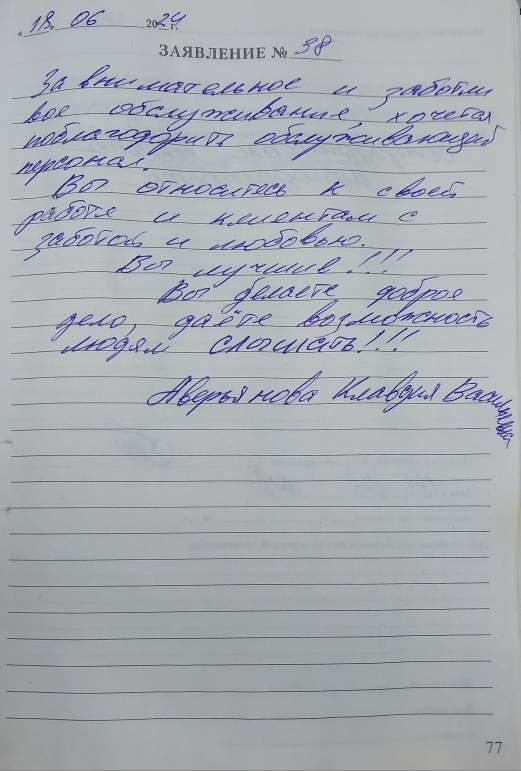 «18» 06 2024 г.
ЗАЯВЛЕНИЕ № 38
За внимательное и заботли
вое обслуживание, хочется
поблагодарить обслуживающий
персонал.
Вы относитесь к своей
работе и клиентам с
заботой и любовью.
Вы лучшие!!!
Вы делаете доброе
дело, даёте возможность
людям слышать!!!
Аверьянова Клавдия Васильевна
77